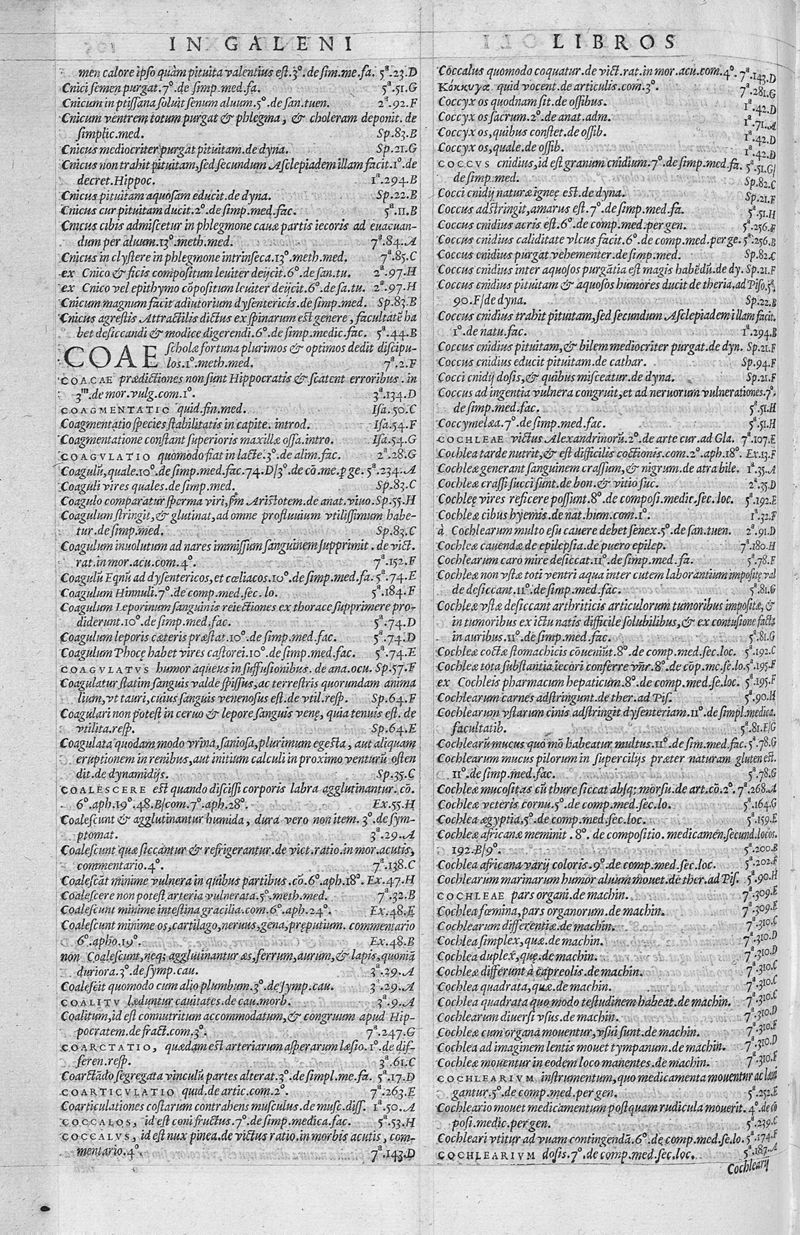 IN GALENI
men calore ipso quàm pituita valentius est.3º.de sim.me.fa. 5ª.23.D
Cnici semen purgat.7º.de simp.med.fa. 5ª.51.G
Cnicum in ptissana soluit senum aluum.5º.de san.tuen. 2ª.92.F
Cnicum ventrem totum purgat & phlegma, & choleram deponit.de
simplic.med. Sp.83.B
Cnicus mediocriter purgat pituitam.de dyna. Sp.21.G
Cnicus non trahit pituitam, sed secundum Asclepiadem illam facit.1º.de
decret.Hippoc. 1ª.294.B
Cnicus pituitam aquosam educit.de dyna. Sp.22.B
Cnicus cur pituitam ducit.2º.de simp.med.fac. 5ª.11.B
Cnicus cibis admiscetur in phlegmone cauæ partis iecoris ad euacuan-
dum per aluum.13º.meth.med. 7ª.84.A
Cnicus in clystere in phlegmone intrinseca.13º.meth.med. 7ª.85.C
ex Cnico & ficis compositum leuiter deijcit.6º.de san.tu. 2ª.97.H
ex Cnico vel epithymo cōpositum leuiter deijcit.6º.de sa.tu. 2ª.97.H
Cnicum magnum facit adiutorium dysentericis.de simp.med. Sp.83.B
Cnicus agrestis Attractilis dictus ex spinarum est genere, facultatē ha
bet desiccandi & modice digerendi.6º.de simp.medic.fac. 5ª.44.B
COAE scholæ fortuna plurimos & optimos dedit discipu-
los.1º.meth.med. 7ª.2.F
COACAE prædictiones non sunt Hippocratis & scatent erroribus.in
3ᵐ.de mor.vulg.com.1º. 3ª.134.D
COAGMENTATIO quid.fin.med. Isa.50.C
Coagmentatio species stabilitatis in capite. introd. Isa.54.F
Coagmentatione constant superioris maxillæ ossa.intro. Isa.54.G
COAGVLATIO quomodo fiat in lacte.3º.de alim.fac. 2ª.28.G
Coagulū, quale.10º.de simp.med.fac.74.D/3º.de cō.me.p ge. 5ª.234.A
Coaguli vires quales.de simp.med. Sp.83.C
Coagulo comparatur sperma viri, ſm Aristotem.de anat.viuo. Sp.55.H
Coagulum stringit, & glutinat, ad omne profluuium vtilissimum habe-
tur.de simp.med. Sp.83.C
Coagulum inuolutum ad nares immissum sanguinem supprimit.de vict.
rat.in mor.acu.com.4º. 7ª.152.F
Coagulū Equi ad dysentericos, et cœliacos.10º.de simp.med.fa. 5ª.74.E
Coagulum Hinnuli.7º.de comp.med.sec.lo. 5ª.184.F
Coagulum Leporinum sanguinis reiectiones ex thorace supprimere pro-
diderunt.10º.de simp.med.fac. 5ª.74.D
Coagulum leporis cæteris præstat.10º.de simp.med.fac. 5ª.74.D
Coagulum Phocę habet vires castorei.10º.de simp.med.fac. 5ª.74.E
COAGVLATVS humor aqueus in suffusionibus.de ana.ocu. Sp.57.F
Coagulatur statim sanguis valde spissus, ac terrestris quorundam anima
lium, vt tauri, cuius sanguis venenosus est.de vtil.resp. Sp.64.F
Coagulari non potest in ceruo & lepore sanguis venę, quia tenuis est.de
vtilita.resp. Sp.64.E
Coagulata quodam modo vrina, saniosa, plurimum egesta, aut aliquam
eruptionem in renibus, aut initium calculi in proximo venturū osten
dit.de dynamidijs. Sp.35.C
COALESCERE est quando discissi corporis labra agglutinantur.cō.
6º.aph.19º.48.B/com.7º.aph.28º. Ex.55.H
Coalescunt & agglutinantur humida, dura vero non item.3º.de sym-
ptomat. 3ª.29.A
Coalescunt quæ siccantur & refrigerantur.de vict.ratio.in mor.acutis,
commentario.4º. 7ª.138.C
Coalescāt minime vulnera in quibus partibus.cō.6º.aph.18º. Ex.47.H
Coalescere non potest arteria vulnerata.5º.meth.med. 7ª.32.B
Coalescunt minime intestina gracilia.com.6º.aph.24º. Ex.48.E
Coalescunt minime os, cartilago, neruus, gena, preputium. commentario
6º.apho.19º. Ex.48.B
non Coalescunt, neq; agglutinantur æs, ferrum, aurum, & lapis, quoniā
duriora.3º.de symp.cau. 3ª.29.A
Coalescit quomodo cum alio plumbum.3º.de symp.cau. 3ª.29.A
COALITV læduntur cauitates.de cau.morb. 3ª.9.A
Coalitum, id est connutritum accommodatum, & congruum apud Hip-
pocratem.de fract.com.3º. 7ª.247.G
COARCTATIO, quædam est arteriarum asperarum læsio.1º.de dif-
feren.resp. 3ª.61.C
Coarctādo segregata vinculū partes alterat.3º.de simpl.me.fa. 5ª.17.D
COARTICVLATIO quid.de artic.com.2º. 7ª.263.E
Coarticulationes costarum contrahens musculus.de musc.diss. 1ª.50.A
COCCALOS, id est coni fructus.7º.de simp.medica.fac. 5ª.53.H
COCCALVS, id est nux pinea.de victus ratio.in morbis acutis, com-
mentario.4º. 7ª.143.D
LIBROS
Coccalus quomodo coquatur.de vict.rat.in mor.acu.com.4º. 7ª.143.D
Κόκκυγα quid vocent.de articulis.com.3º. 7ª.281.G
Coccyx os quodnam sit.de ossibus. 1ª.42.D
Coccyx os sacrum.2º.de anat.adm. 1ª.71.A
Coccyx os, quibus constet.de ossib. 1ª.42.D
Coccyx os, quale.de ossib. 1ª.42.D
COCCVS cnidius, id est granum cnidium.7º.de simp.med.fa. 5ª.51.G/
de simp.med. Sp.82.C
Cocci cnidij naturæ igneę est.de dyna. Sp.21.F
Coccus adstringit, amarus est.7º.de simp.med.fac. 5ª.51.H
Coccus cnidius acris est.6º.de comp.med.per gen. 5ª.256.F
Coccus cnidius caliditate vlcus facit.6º.de comp.med.per ge. 5ª.256.B
Coccus cnidius purgat vehementer.de simp.med. Sp.82.C
Coccus cnidius inter aquosos purgātia est magis habēdū.de dy. Sp.21.F
Coccus cnidius pituitam & aquosos humores ducit de theria, ad Piso.5ª
90.F/de dyna. Sp.22.B
Coccus cnidius trahit pituitam, sed secundum Asclepiadem illam facit.
1º.de natu.fac. 1ª.294.B
Coccus cnidius pituitam, & bilem mediocriter purgat.de dyn. Sp.21.F
Coccus cnidius educit pituitam.de cathar. Sp.94.F
Cocci cnidij dosis, & quibus misceatur.de dyna. Sp.21.F
Coccus ad ingentia vulnera congruit, et ad neruorum vulnerationes.7º.
de simp.med.fac. 5ª.51.H
Coccymelea.7º.de simp.med.fac. 5ª.51.H
COCHLEAE victus Alexandrinorū.2º.de arte cur.ad Gla. 7ª.107.E
Cochlea tarde nutrit, & est difficilis coctionis.com.2º.aph.18º. Ex.13.F
Cochleæ generant sanguinem crassum, & nigrum.de atra bile. 1ª.35.A
Cochleæ crassi succi sunt.de bon.& vitio suc. 2ª.35.D
Cochleę vires reficere possunt.8º.de composi.medic.sec.loc. 5ª.192.E
Cochleæ cibus hyemis.de nat.hum.com.1º. 1ª.32.F
à Cochlearum multo esu cauere debet senex.5º.de san.tuen. 2ª.91.D
Cochleæ cauendæ de epilepsia.de puero epilep. 7ª.180.H
Cochlearum caro mire desiccat.11º.de simp.med.fa. 5ª.78.F
Cochleæ non vstæ toti ventri aqua inter cutem laborantium impositę val
de desiccant.11º.de simp.med.fac. 5ª.81.G
Cochleæ vstæ desiccant arthriticis articulorum tumoribus impositæ, &
in tumoribus ex ictu natis difficile solubilibus, & ex contusione factis
in auribus.11º.de simp.med.fac. 5ª.81.G
Cochleæ coctæ stomachicis cōueniūt.8º.de comp.med.sec.loc. 5ª.192.C
Cochlea tota substantia iecori conferre vr̄.8º.de cōp.mc.se.lo. 5ª.195.F
ex Cochleis pharmacum hepaticum.8º.de comp.med.se.loc. 5ª.195.F
Cochlearum carnes adstringunt.de ther.ad Pis. 5ª.90.H
Cochlearum vstarum cinis adstringit dysenteriam.11º.de simpl.medica.
facultatib. 5ª.81.F/G
Cochlearū mucus quo mō habeatur multus.11º.de sim.med.fac. 5ª.78.G
Cochlearum mucus pilorum in supercilijs præter naturam gluten est.
11º.de simp.med.fac. 5ª.78.G
Cochleæ mucositas cū thure siccat absq; morsu.de art.cō.2º. 7ª.268.A
Cochleæ veteris cornu.5º.de comp.med.sec.lo. 5ª.164.G
Cochlea ægyptia.5º.de comp.med.sec.loc. 5ª.159.E
Cochleæ africanæ meminit. 8º.de compositio.medicamen.secund.locos.
192.B/9º. 5ª.200.B
Cochlea africana varij coloris.9º.de comp.med.sec.loc. 5ª.202.F
Cochlearum marinarum humor aluum mouet.de ther.ad Pis. 5ª.90.H
COCHLEAE pars organi.de machin. 7ª.309.E
Cochlea fœmina, pars organorum.de machin. 7ª.309.E
Cochlearum differentiæ.de machin. 7ª.310.C
Cochlea simplex, quæ.de machin. 7ª.310.D
Cochlea duplex, quæ.de machin. 7ª.310.D
Cochleæ differunt à capreolis.de machin. 7ª.310.C
Cochlea quadrata, quæ.de machin. 7ª.310.C
Cochlea quadrata quo modo testudinem habeat.de machin. 7ª.310.C
Cochlearum diuersi vsus.de machin. 7ª.310.C
Cochleæ cum organa mouentur, vsui sunt.de machin. 7ª.310.E
Cochlea ad imaginem lentis mouet tympanum.de machin. 7ª.310.C
Cochleæ mouentur in eodem loco manentes.de machin. 7ª.310.F
COCHLEARIVM instrumentum, quo medicamenta mouentur ac læui
gantur.5º.de comp.med.per gen. 5ª.252.E
Cochleario mouet medicamentum postquam rudicula mouerit.4º.de cō
posi.medic.per gen. 5ª.239.C
Cochleari vtitur ad vuam contingendā.6º.de comp.med.se.lo. 5ª.174.F
COCHLEARIVM dosis.7º.de comp.med.sec.loc. 5ª.187.A
Cochlearij